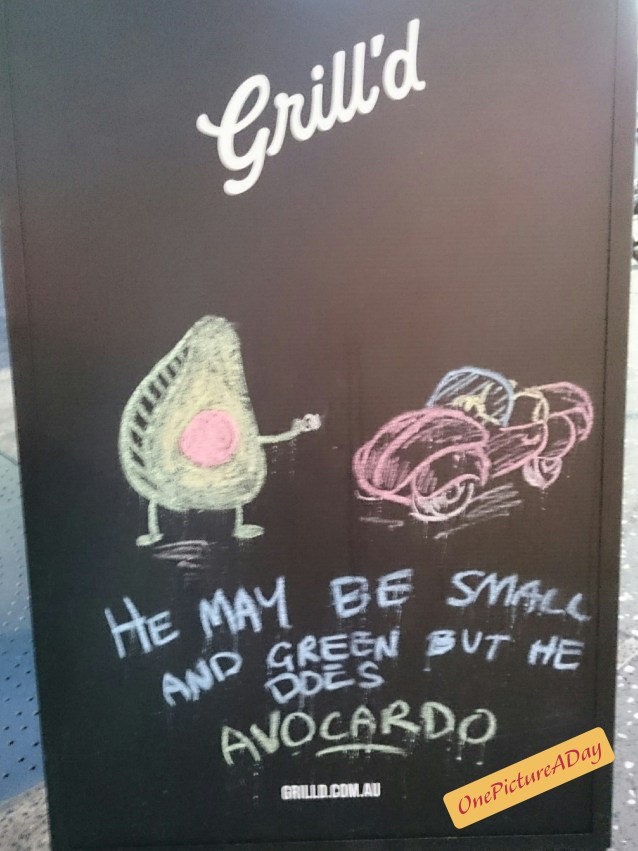 Grill'd
HE MAY BE SMALL
AND GREEN BUT HE
DOES
AVOCARDO
GRILLD.COM.AU
OnePictureADay